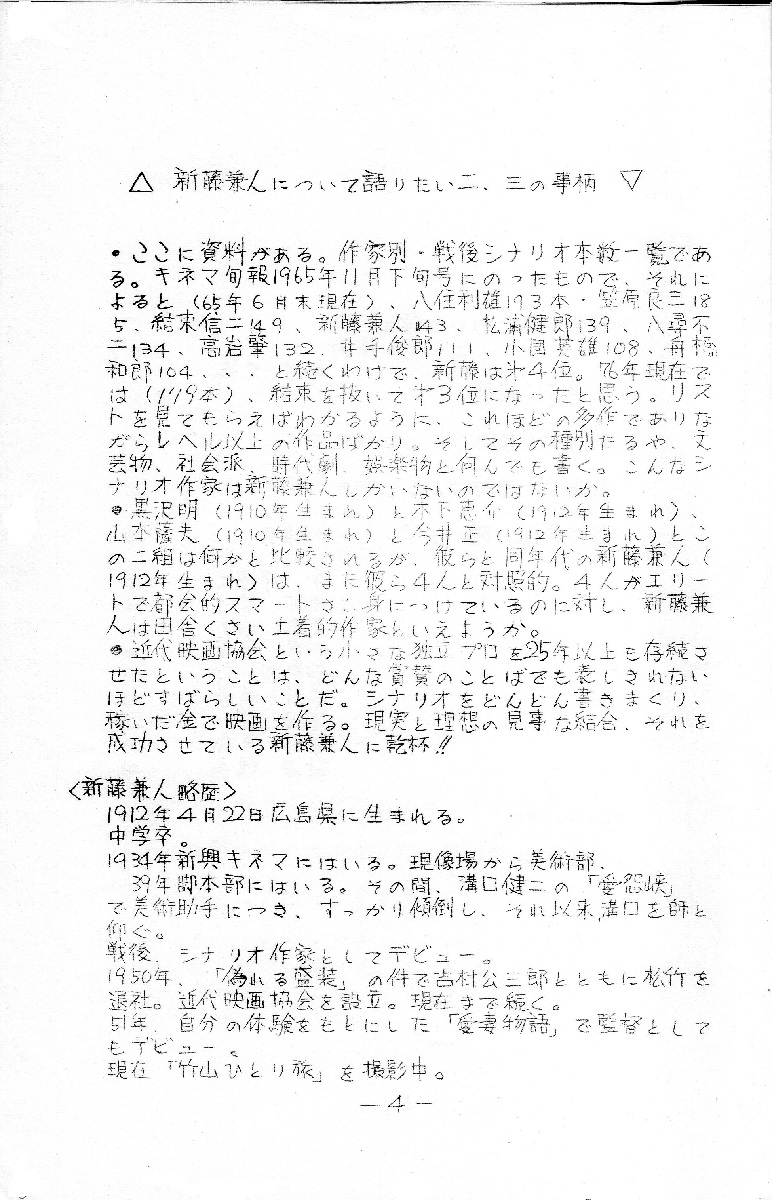 △ 新藤兼人について語りたい二、三の事柄 ▽
・ここに資料がある。作家別・戦後シナリオ本数一覧であ
る。キネマ旬報1965年11月下旬号にのったもので、それに
よると(65年6月末現在)、八住利雄193本・笠原良三18
5、結束信二149、新藤兼人143、松浦健郎139、八尋不
二134、高岩肇132、井手俊郎111、小國英雄108、舟橋
和郎104、、、と続くわけで、新藤は才4位。76年現在で
は(179本)、結束を抜いて才3位になったと思う。リス
トを見てもらえばわかるように、これほどの多作でありな
がらレベル以上の作品ばかり。そしてその種別たるや、文
芸物、社会派、時代劇、娯楽物と何んでも書く。こんなシ
ナリオ作家は新藤兼人しかいないのではないか。
・黒沢明(1910年生まれ)と木下恵介(1912年生まれ)、
山本薩夫(1910年生まれ)と今井正(1912年生まれ)とこ
の二組は何かと比較されるが、彼らと同年代の新藤兼人(
1912年生まれ)は、まに彼ら4人と対照的。4人がエリー
トで都会的スマートさを身につけているのに対し、新藤兼
人は田舎くさい土着的作家といえようか。
・近代映画協会という小さな独立プロを25年以上も存続さ
せたということは、どんな賞賛のことばでも表しきれない
ほどすばらしいことだ。シナリオをどんどん書きまくり、
稼いだ金で映画を作る。現実と理想の見事な結合、それを
成功させている新藤兼人に乾杯!!
<新藤兼人略歴>
1912年4月22日広島県に生まれる。
中学卒。
1934年新興キネマにはいる。現像場から美術部、
39年脚本部にはいる。その間、溝口健二の「愛怨峡」
で美術助手につき、すっかり傾倒し、それ以来溝口を師と
仰ぐ。
戦後、シナリオ作家としてデビュー。
1950年、「偽れる盛装」の件で吉村公三郎とともに松竹を
退社。近代映画協会を設立。現在まで続く。
51年、自分の体験をもとにした「愛妻物語」で監督として
もデビュー。
現在「竹山ひとり旅」を撮影中。
－4－